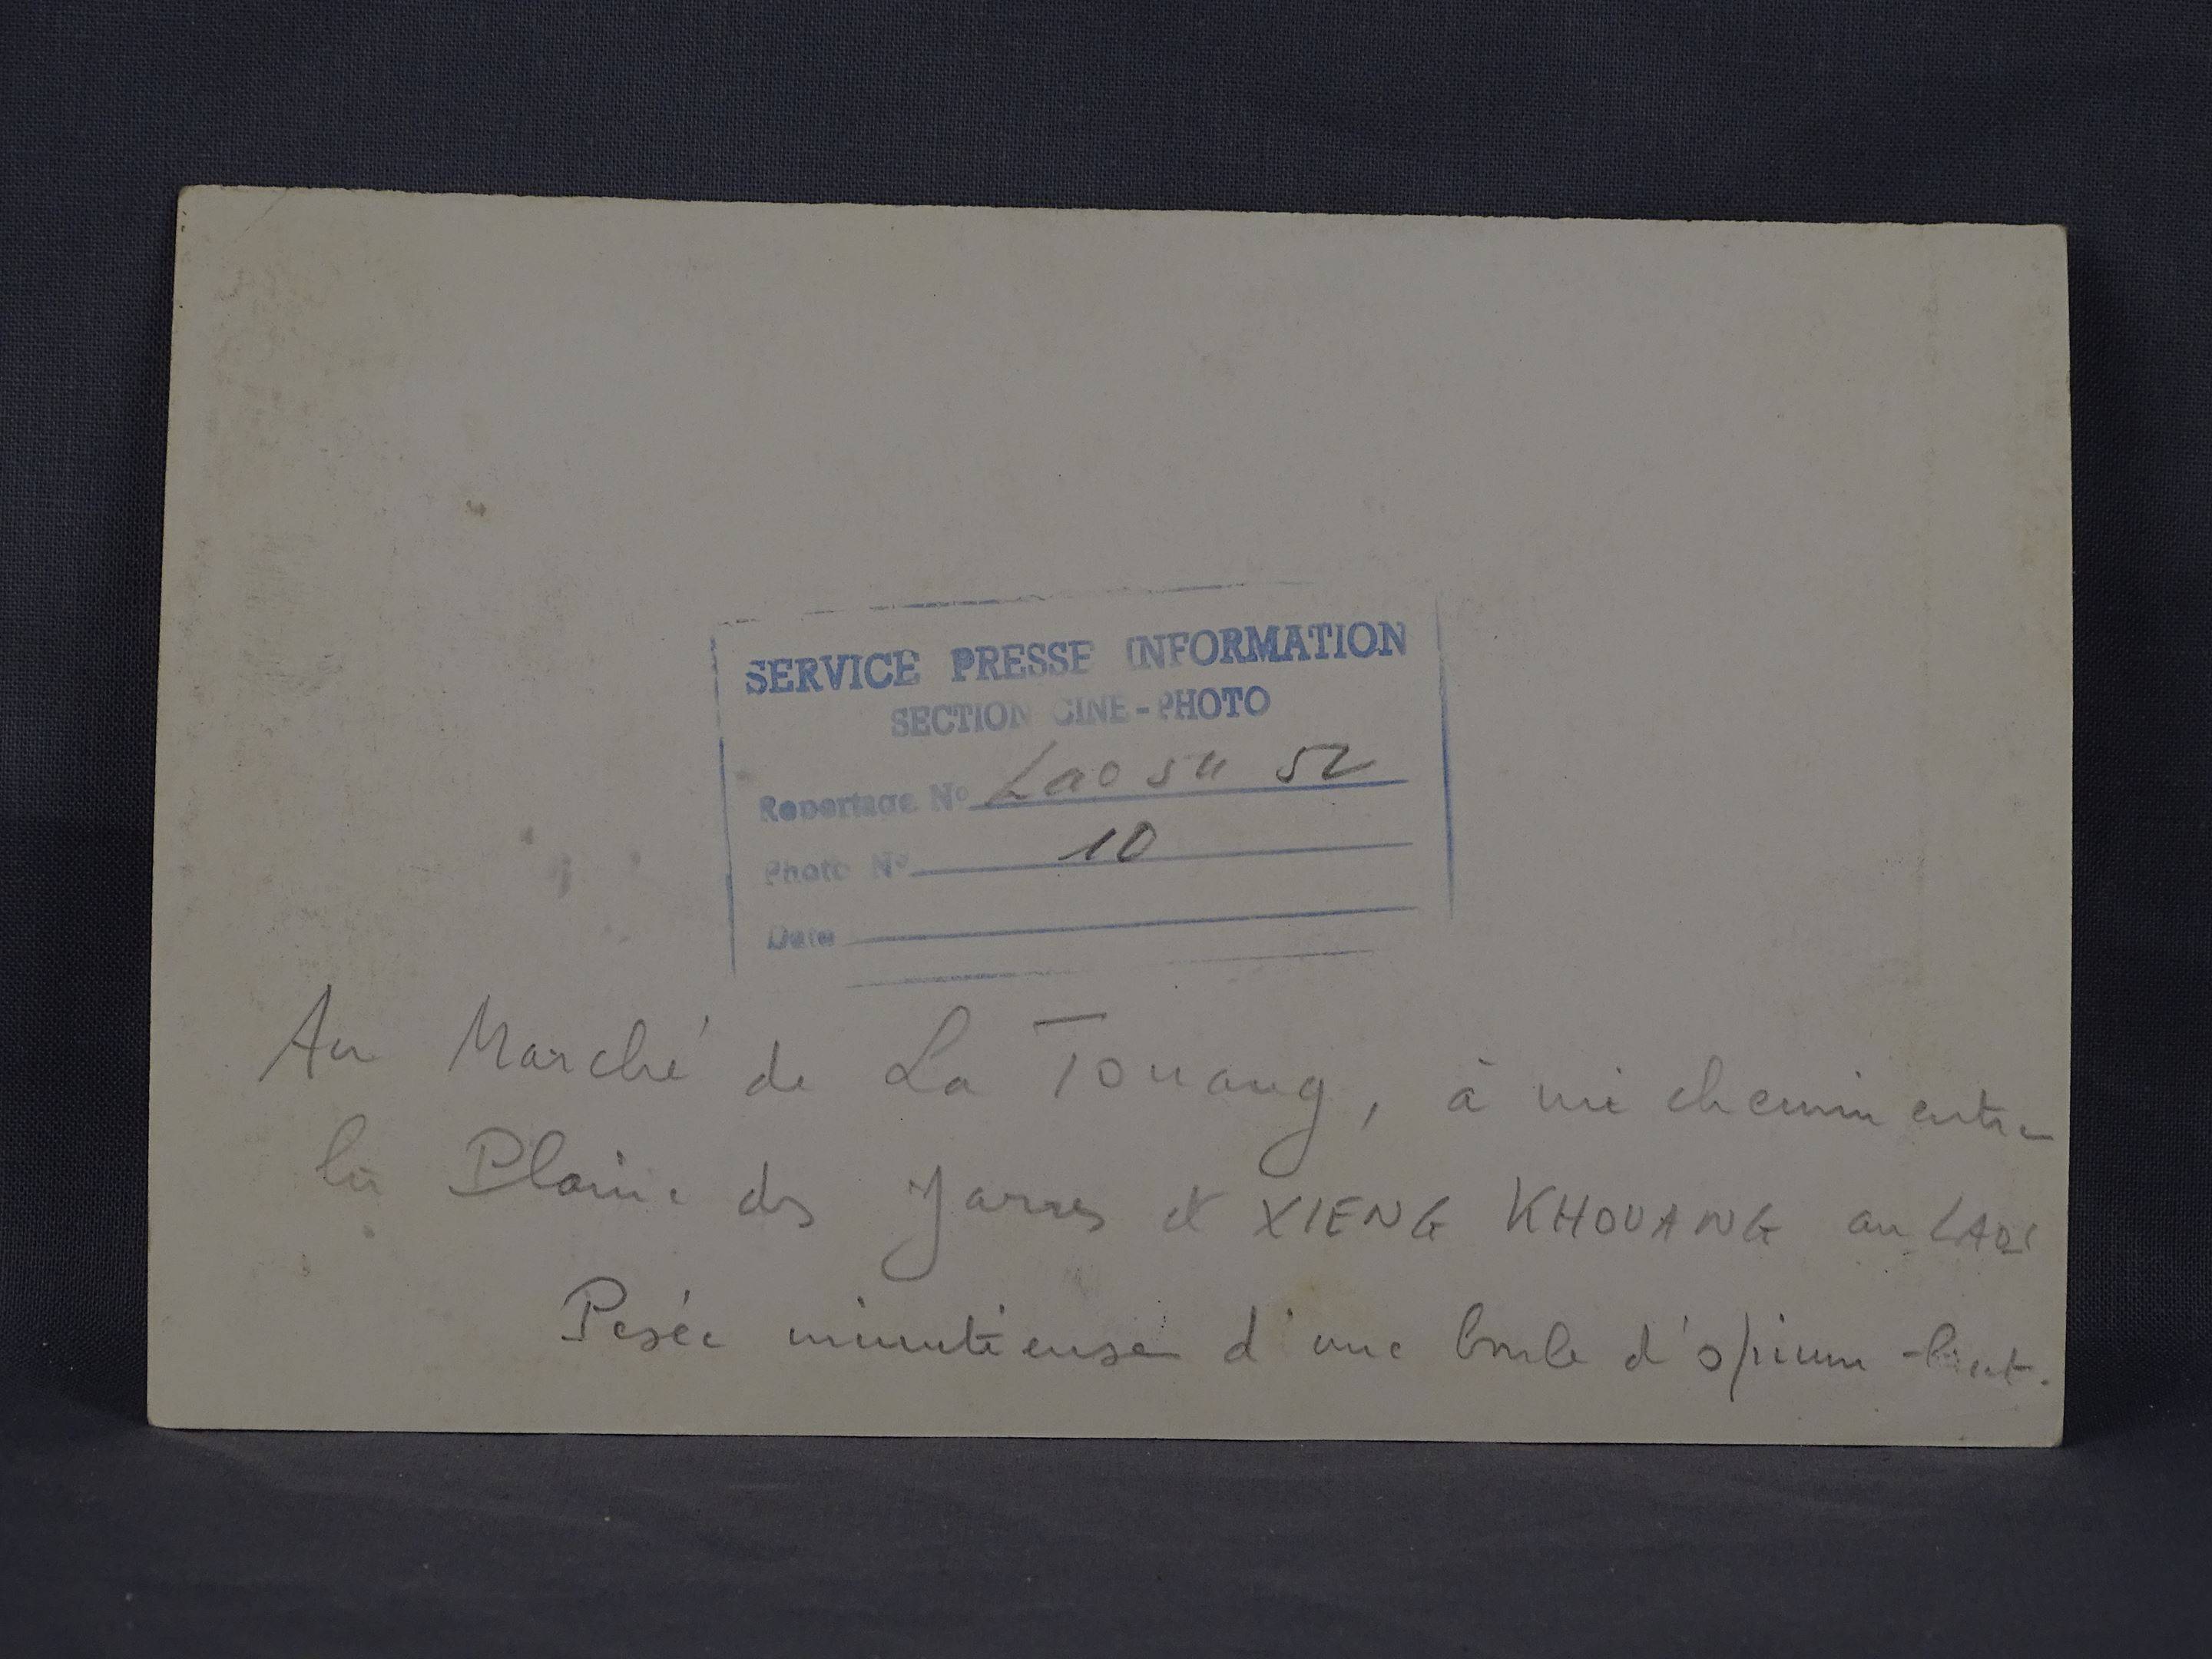 SERVICE PRESSE INFORMATION
SECTION CINE-PHOTO
Reportage N° 52
Photo N° 10
Date
Au Marché de La Touang, à mi chemin entre
la Plaine des Jarres et XIENG KHOUANG au LAOS
Pesée minutieuse d'une boule d'opium brut.